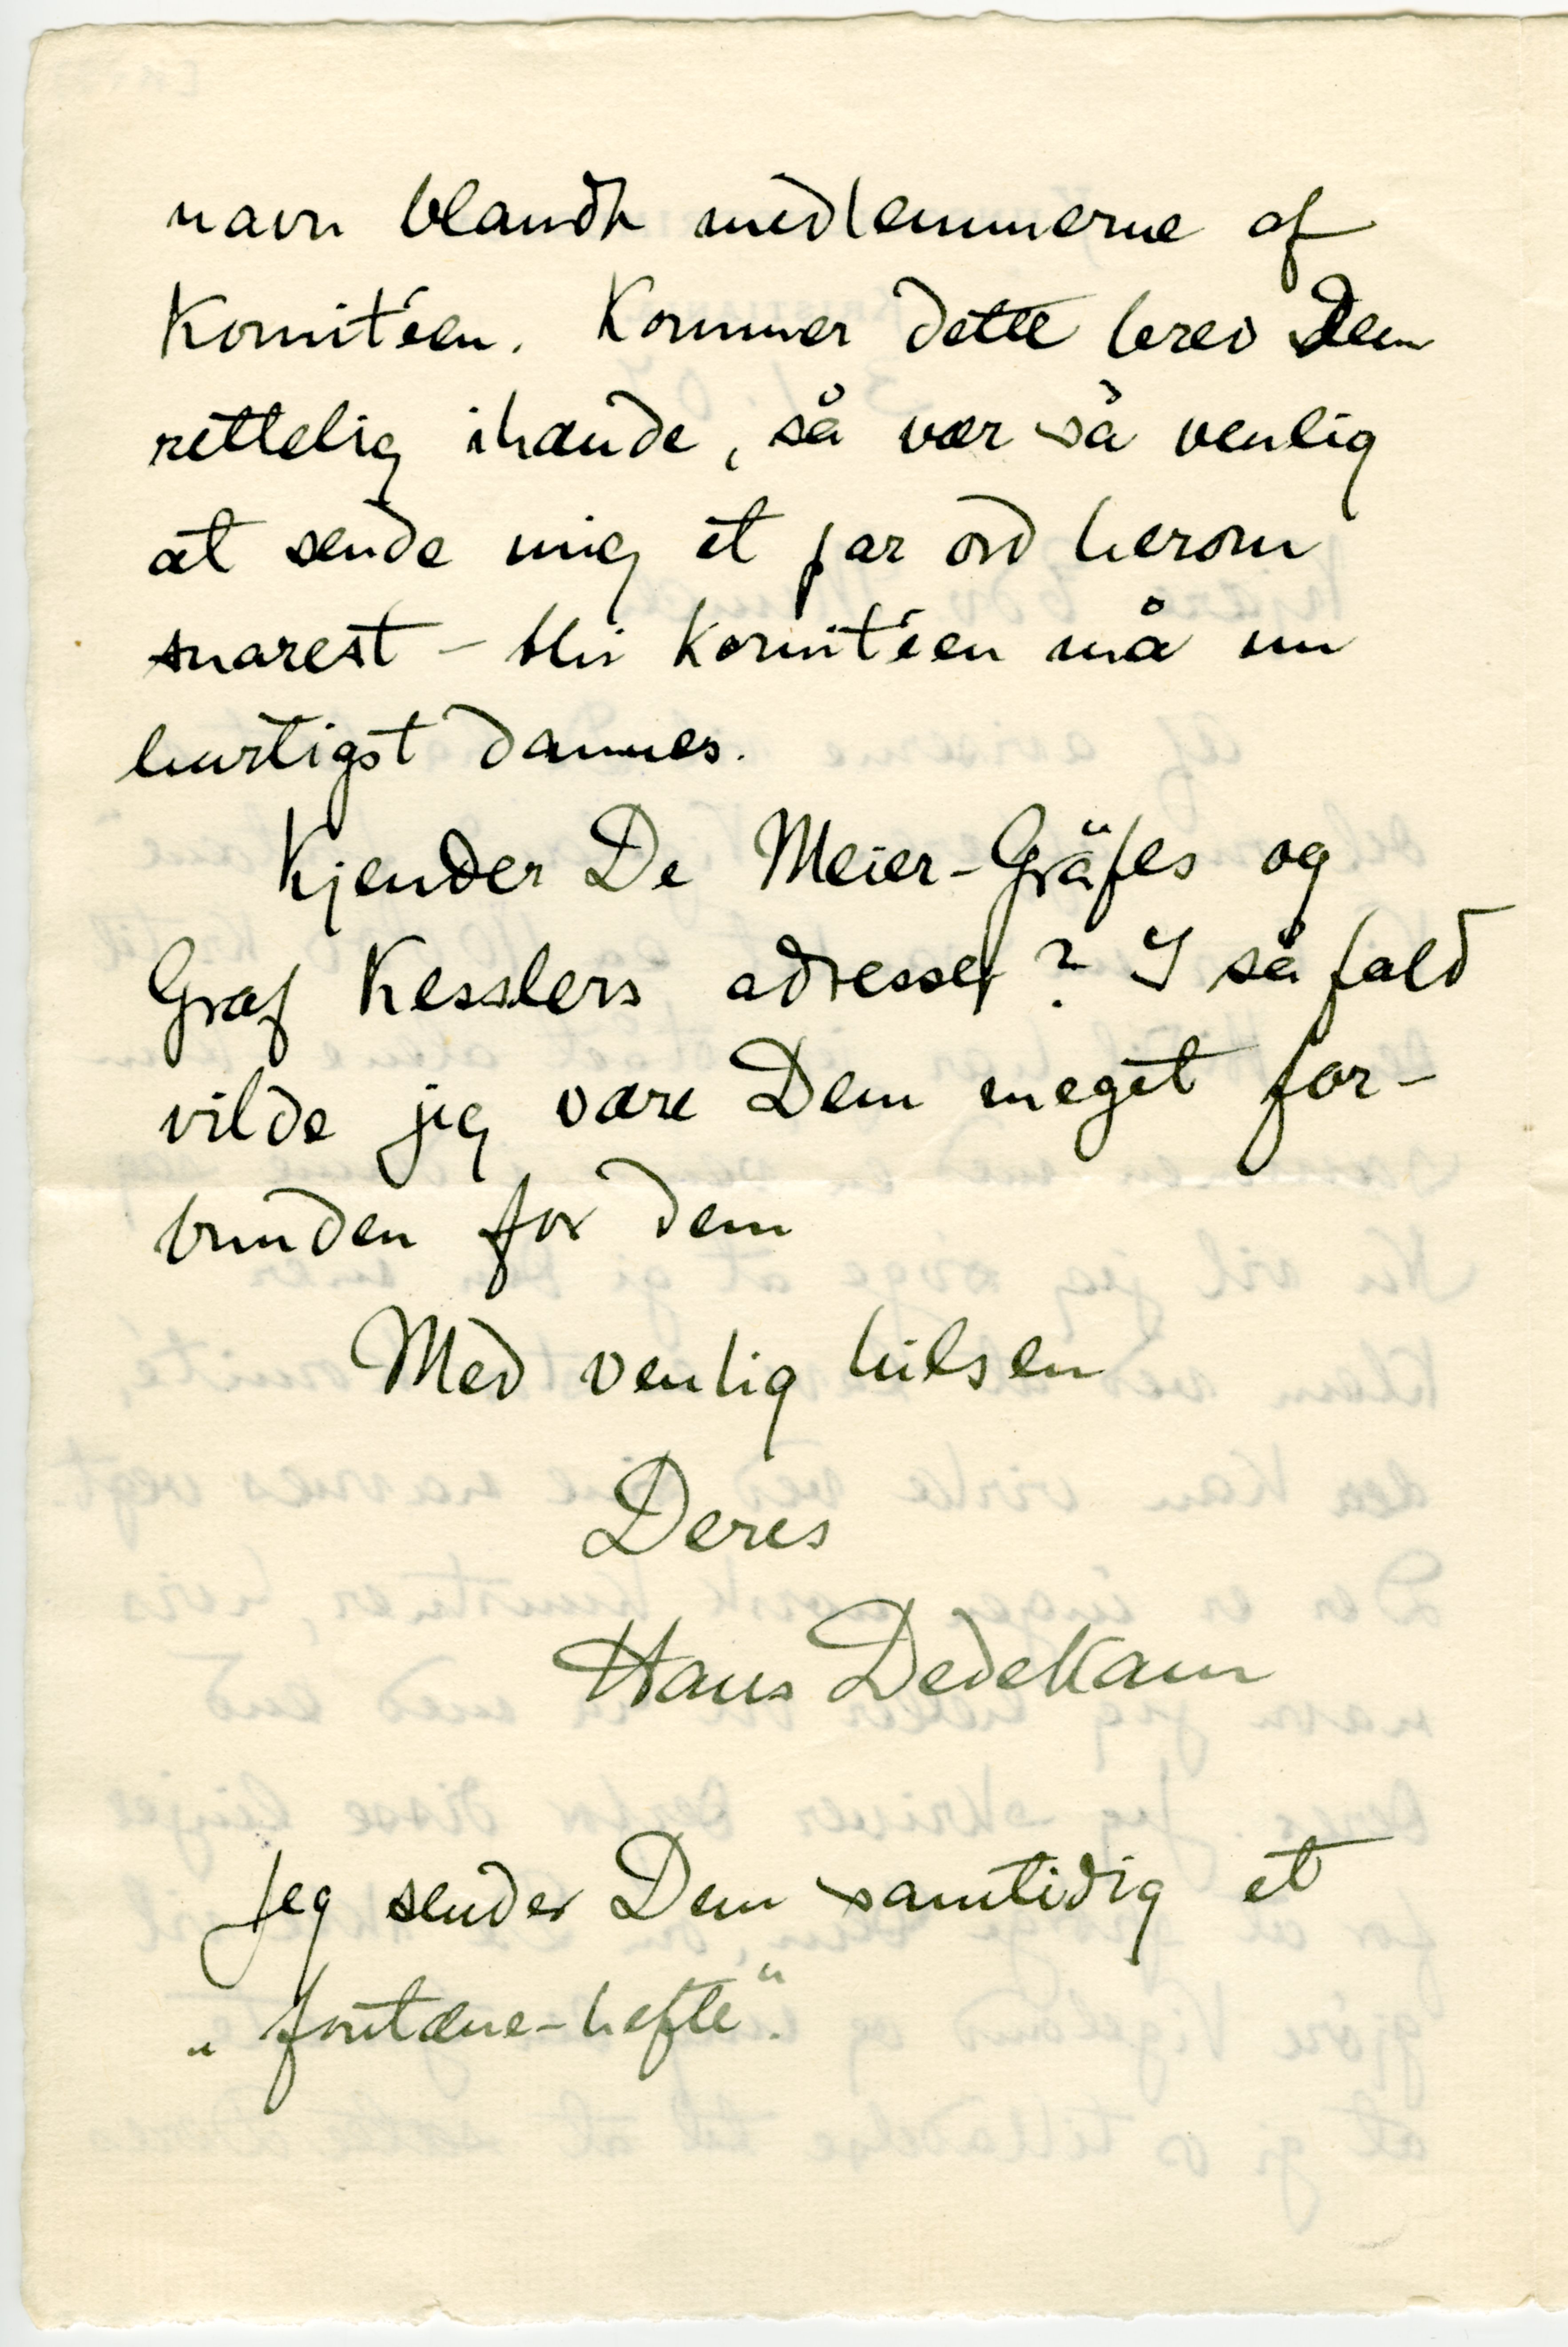 navn blandt medlemmerne af
Komitéen. Kommer dette brev Dem
rettelig ihænde, så vær så venlig
at sende mig et par ord herom
snarest – thi Komitéen må nu
hurtigst dannes.
Kjender De Meier-Gräfes og
Graf Kesslers adresser? I så fald
vilde jeg være Dem meget for-
bunden for dem
Med venlig hilsen
Deres
Hans Dedekam
Jeg sender Dem samtidig et
„fontæne-hefte“.